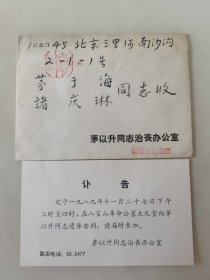 100045 北京三里河南沙沟
2-1-1号
茅于海
诸庆琳 同志收
茅以升同志治丧办公室
讣告
定于一九八九年十一月二十七日下午
三时至四时,在八宝山革命公墓大礼堂向茅
以升同志遗体告别,请届时参加。
茅以升同志治丧办公室
联系电话:66.6477